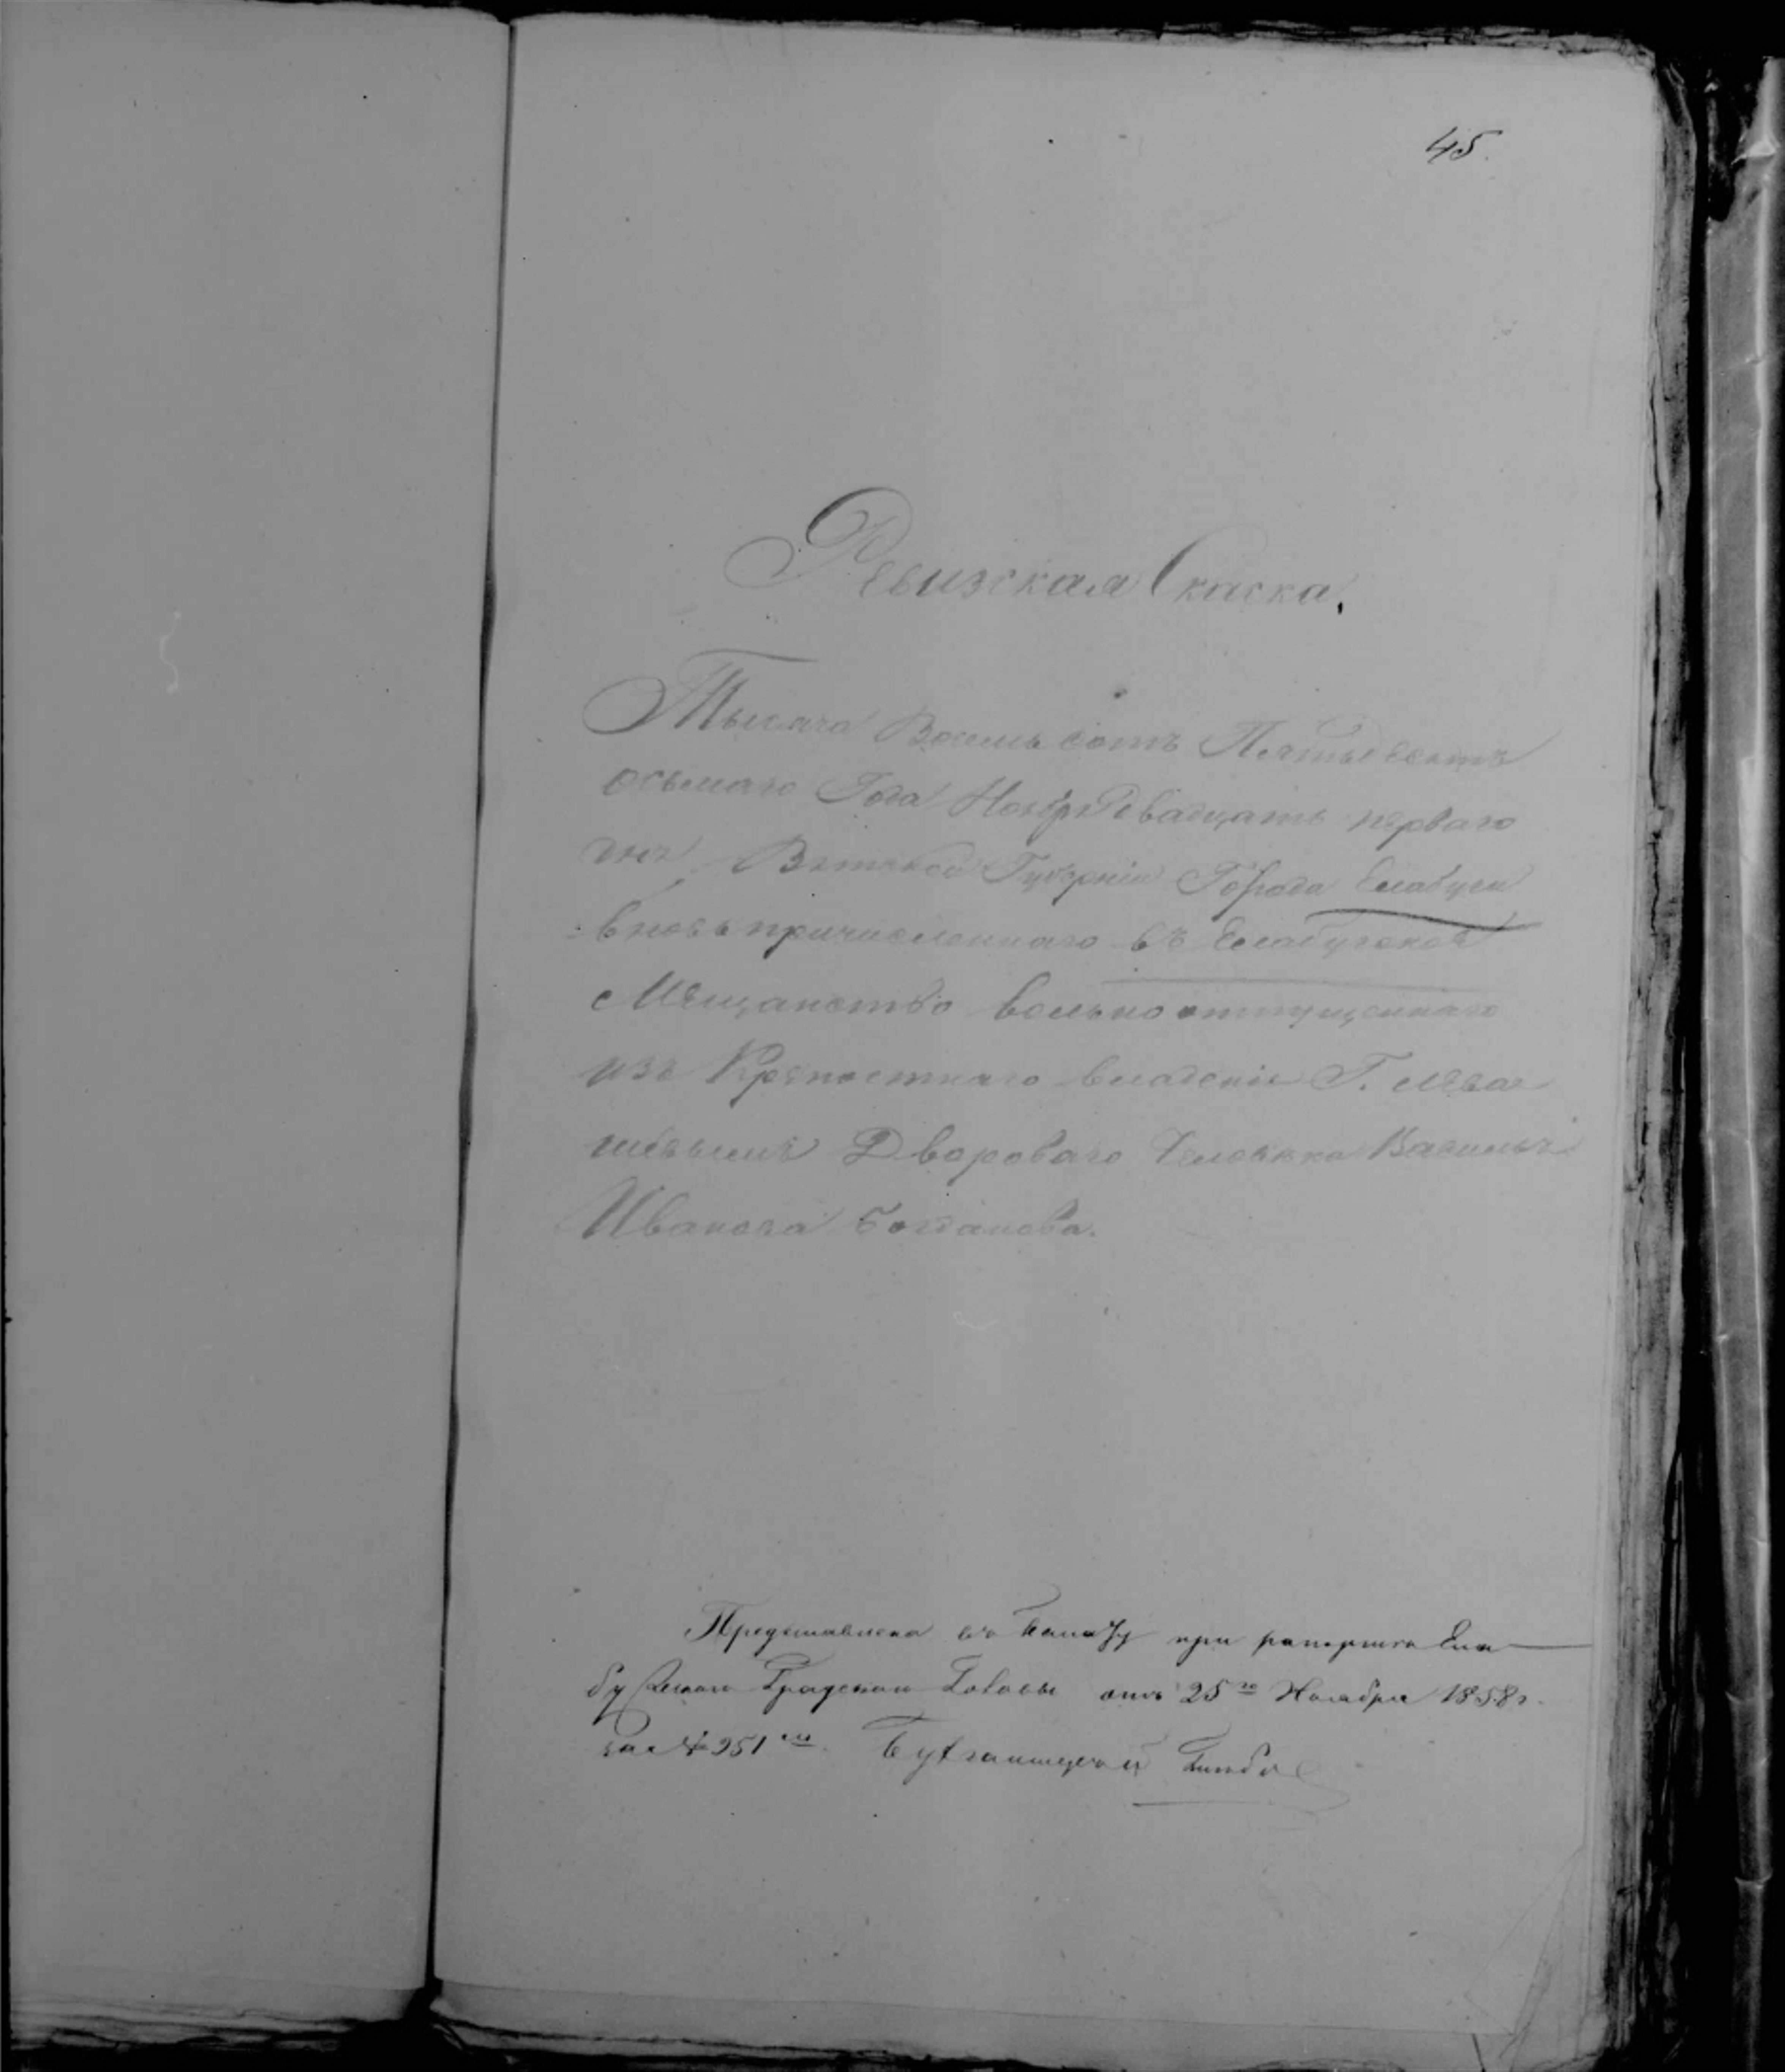 45.
Ревизская Скаска,
Тысяча Восемь сотъ Пятьдесятъ
осьмаго Года Ноября двадцать перваго
дня Вятской Губерніи Города Елабуги
вновь причисленнаго въ Елабугское
Мѣщанство вольно отпущеннаго
изъ Крѣпостнаго владенія Г.
Двороваго Человѣка Василья
Иванова Богданова.
Представлена въ Палату при рапортѣ Ела
бужскаго Градскаго Головы отъ 25го Ноября 1858г.
за № 951мъ. Бухгалтерскій